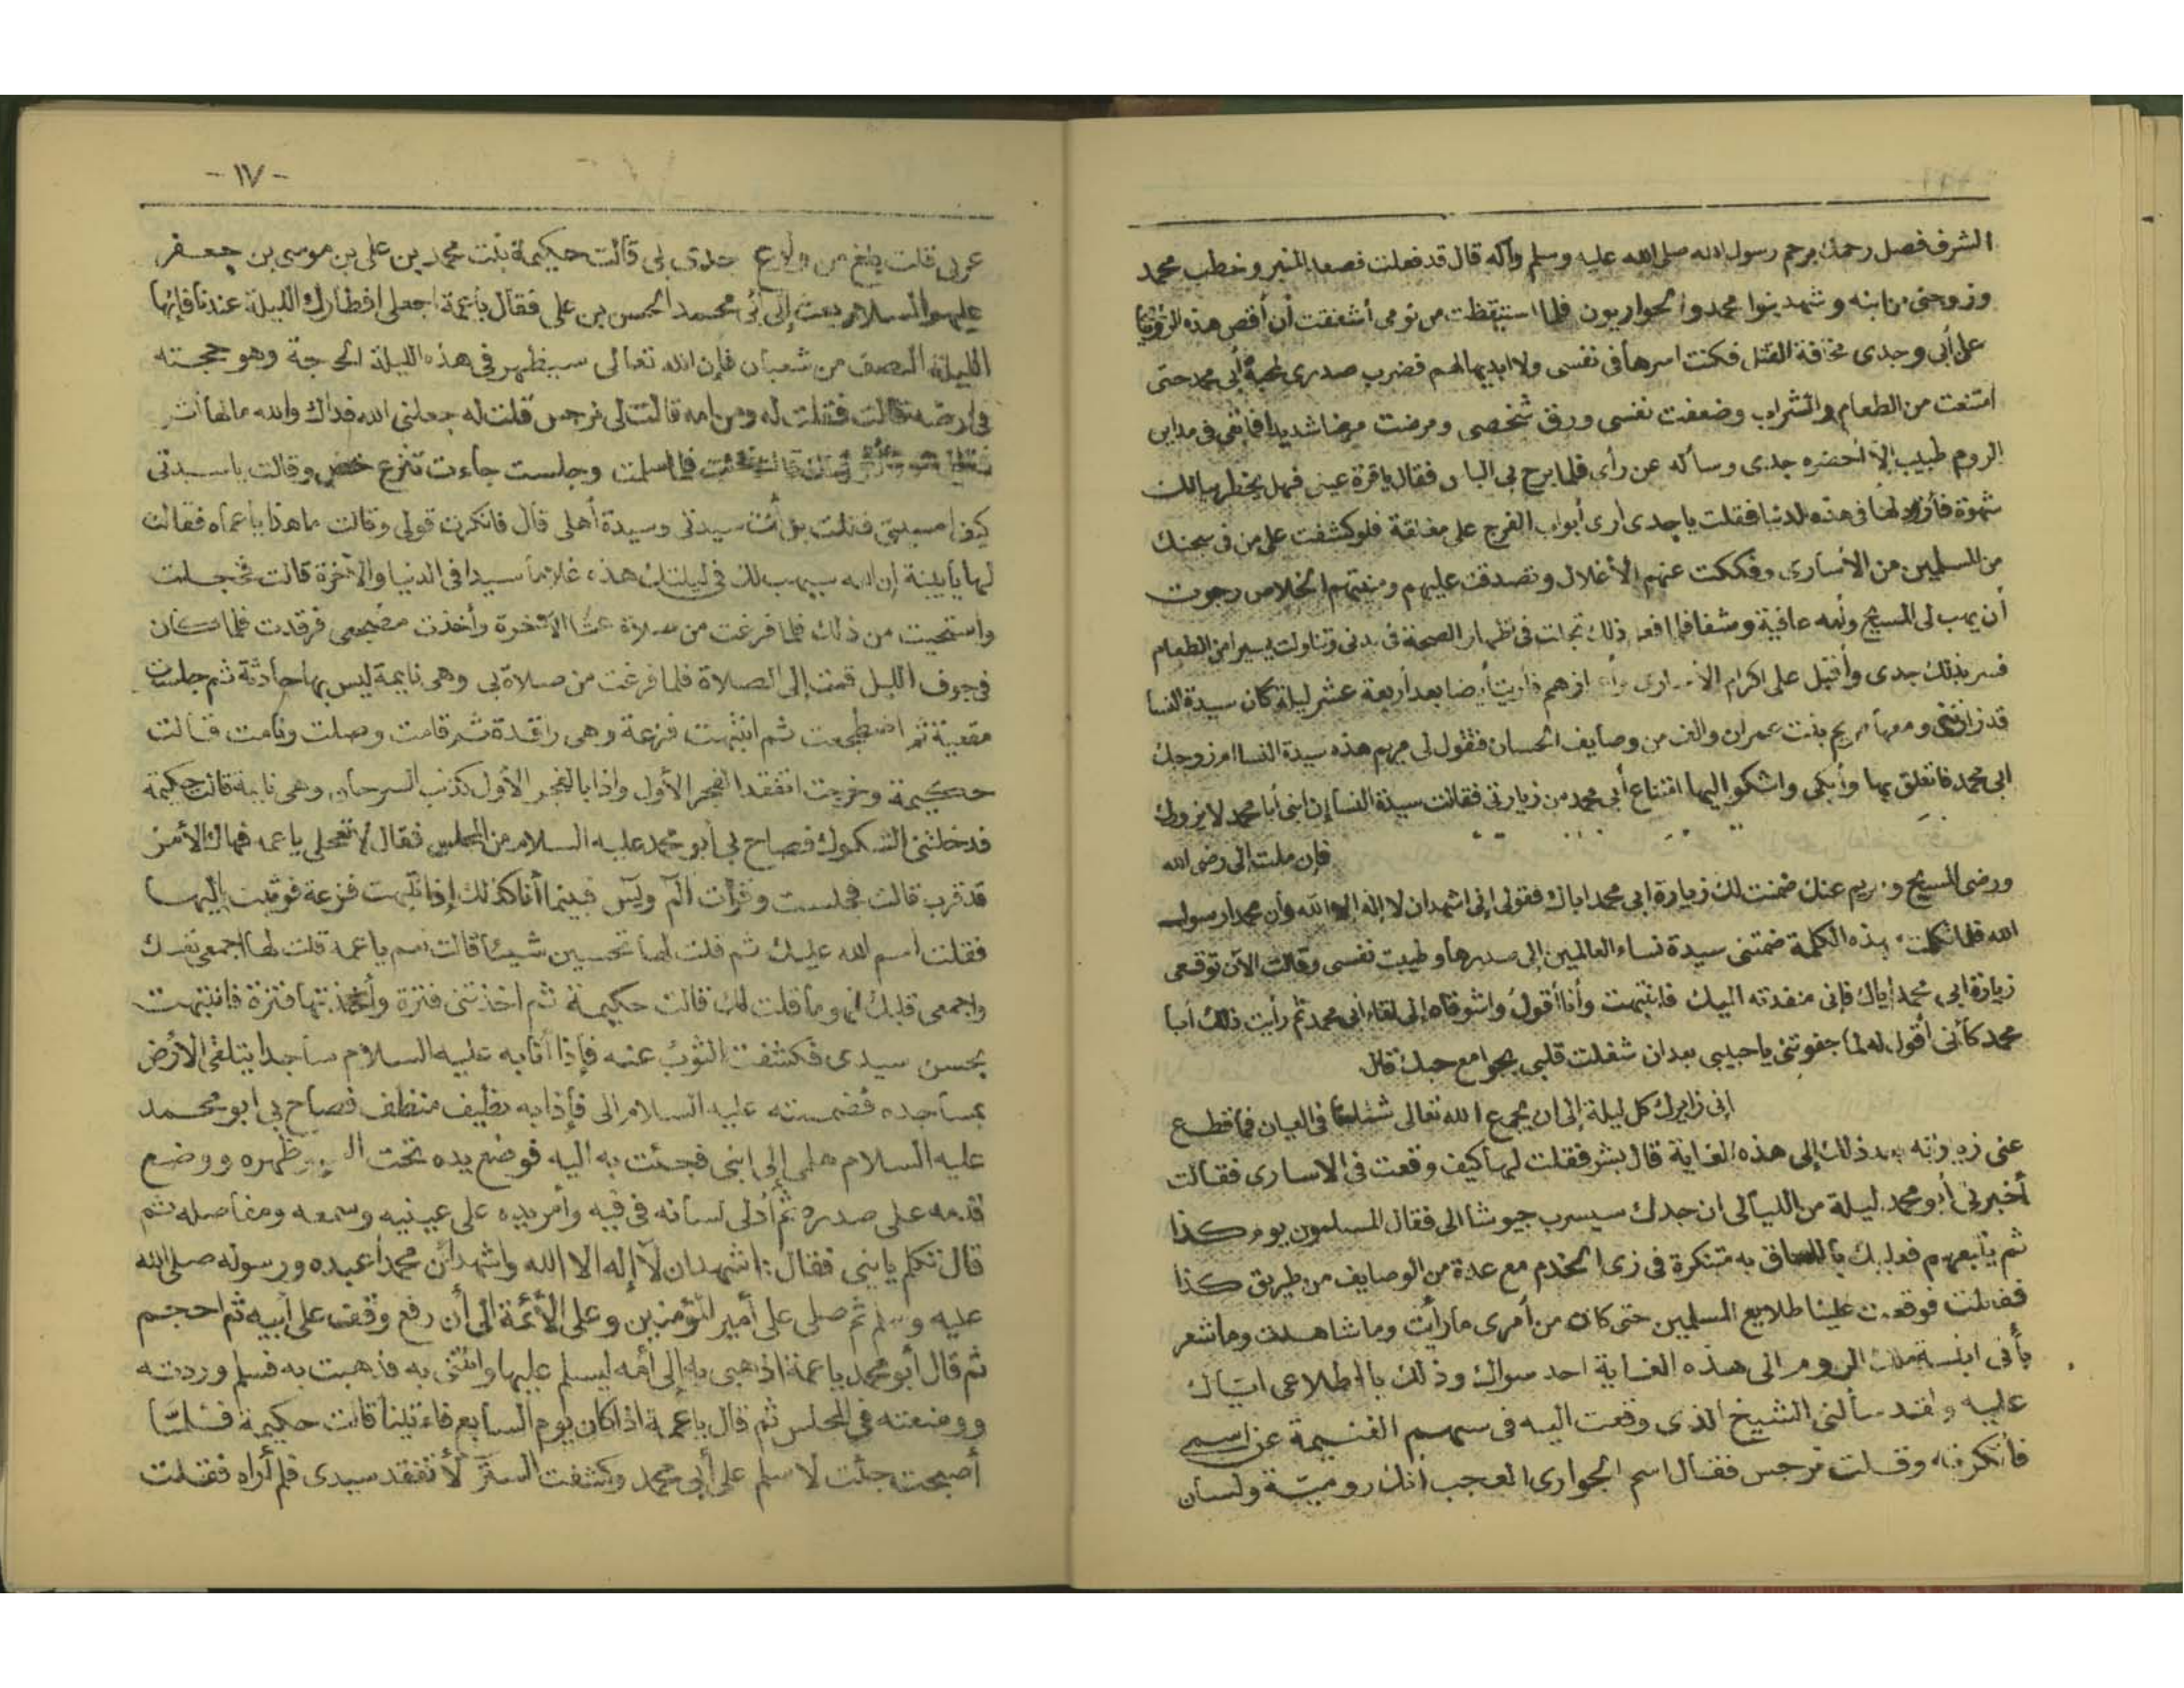 الشرف فصل رحمك برحم رسول الله صلى الله عليه وسلم وآله قال قد فعلت فصعد المنبر وخطب محمد
وزوجنى من ابنه وشهد بنوا محمد والحواريون فلما استيقظت من نومى أشفقت أن أقص هذه الرؤيا
على أبى وجدى مخافة القتل فكنت اسرها فى نفسى ولا ابديها لهم فضرب صدرى بمحبة أبى محمد حتى
امتنعت من الطعام والشراب وضعفت نفسى ورق شخصى ومرضت مرضا شديدا فما بقى فى مداين
الروم طبيب إلا أحضره جدى وسأله عن رأى فلما برح بى الياس فقال ياقرة عينى فهل يخطر ببالك
شهوة فأزودلها فى هذه الدنيا فقلت ياجدى ارى أبواب الفرج على مغلقة فلو كشفت على من فى سجنك
من المسلمين من الأسارى وفككت عنهم الأغلال وتصدقت عليهم ومنيتهم الخلاص رجوت
أن يهب لى المسيح وأمه عافية وشفا فلما فعل ذلك تجلت فى ظهار الصحة فى بدنى وتناولت يسيرا من الطعام
فسر بذلك جدى وأقبل على اكرام الأسارى واعزازهم فأريت أيضا بعد أربعة عشر ليلة كان سيدة النسا
قد زارتنى ومعها مريم بنت عمران والف من وصايف الحسان فتقول لى مريم هذه سيدة النسا ام زوجك
ابى محمد فاتعلق بها وأبكى واشكو اليها امتناع أبى محمد من زيارتى فقالت سيدة النسا إن ابنى أبا محمد لا يزورك
فإن ملت إلى رضى الله
ورضى المسيح ومريم عنك ضمنت لك زيارة ابى محمد اياك فقولى إنى اشهد ان لا إله إلا الله وأن محمدا رسول
الله فلما تكلمت بهذه الكلمة ضمتنى سيدة نساء العالمين إلى صدرها وطيبت نفسى وقالت الآن توقعى
زيارة ابى محمد إياك فإنى منفدته اليك فانتبهت وأنا أقول واشوقاه إلى لقاء ابى محمد ثم رأيت ذلك أبا
محمد كأنى أقول له لما جفوتنى ياحبيبى بعد ان شغلت قلبى بجوامع حبك قال
انى زايرك كل ليلة إلى ان يجمع الله تعالى شملنا فى العيان فما قطع
عنى زيارته بعد ذلك إلى هذه الغاية قال بشر فقلت لها كيف وقعت فى الاسارى فقالت
أخبرنى أبو محمد ليلة من الليالى ان جدك سيسرب جيوشا الى فقال المسلمون يوم كذا
ثم يتبعهم فعليك باللحاق به متنكرة فى زى الخدم مع عدة من الوصايف من طريق كذا
ففعلت فوقعت علينا طلايع المسلمين حتى كان من أمرى ما رأيت وما شاهدت وما شعر
بأنى ابنة ملك الروم الى هذه الغاية احد سواك وذلك باطلاعى اياك
عليه ولقد سألنى الشيخ الذى وقعت اليه فى سهم الغنيمة عن اسمى
فأنكرته وقلت نرجس فقال اسم الجوارى العجب انك رومية ولسان
- ١٧ -
عربى قلت بلغ من ولاع جدى بى قالت حكيمة بنت محمد بن على بن موسى بن جعفر
عليهم السلام بعث إلى أبى محمد الحسن بن على فقال ياعمة اجعلى افطارك الليلة عندنا فإنها
الليلة النصف من شعبان فإن الله تعالى سيظهر فى هذه الليلة الحجة وهو حجته
فى أرضه قالت فقلت له ومن امه قالت لى نرجس قلت له جعلنى الله فداك والله ما لها أثر
قالت فجئت فلما سلمت وجلست جاءت تنزع خفى وقالت ياسيدتى
كيف امسيتى فقلت بل أنت سيدتى وسيدة أهلى قال فانكرت قولى وقالت ما هذا ياعماه فقالت
لها يابنية إن الله سيهب لك فى ليلتك هذه غلاما سيدا فى الدنيا والآخرة قالت فخجلت
واستحيت من ذلك فلما فرغت من صلاة عشا الآخرة وأخذت مضجعى فرقدت فلما كان
فى جوف الليل قمت إلى الصلاة فلما فرغت من صلاتى وهى نايمة ليس بها حادثة ثم جلست
معقبة ثم اضطجعت ثم انتبهت فزعة وهى راقدة ثم قامت وصلت ونامت قالت
حكيمة وخرجت اتفقد الفجر الأول واذا بالفجر الأول كذنب السرحان وهى نايمة قالت حكيمة
فدخلتنى الشكوك فصاح بى أبو محمد عليه السلام من المجلس فقال لا تعجلى ياعمه فهاك الأمر
قد قرب قالت فجلست وقرأت الم ويس فبينما أنا كذلك إذا انتبهت فزعة فوثبت إليها
فقلت اسم الله عليك ثم قلت لها تحسين شيئا قالت نعم ياعمه قلت لها اجمعى نفسك
واجمعى قلبك وما قلت لك قالت حكيمة ثم اخذتنى فترة وأخذتها فترة فانتبهت
بحسن سيدى فكشفت الثوب عنه فإذا أنا به عليه السلام ساجدا يتلقى الأرض
بمساجده فضممته عليه السلام الى فإذا به نظيف منظف فصاح بى ابو محمد
عليه السلام هلمى إلى ابنى فجئت به اليه فوضع يده تحت وظهره ووضع
قدمه على صدره ثم أدلى لسانه فى فيه وأمر يده على عينيه وسمعه ومفاصله ثم
قال تكلم يابنى فقال: اشهد ان لا إله الا الله واشهد أن محمدا عبده ورسوله صلى الله
عليه وسلم ثم صلى على أمير المؤمنين وعلى الأئمة الى أن رفع وقفت على أبيه ثم احجم
ثم قال أبو محمد ياعمة اذهبى به إلى أمه ليسلم عليها وائتنى به فذهبت به فسلم وردته
ووضعته فى المجلس ثم قال ياعمة اذا كان يوم السابع فاءتينا قالت حكيمة فلما
أصبحت جئت لاسلم على أبى محمد وكشفت الستر لأتفقد سيدى فلم أراه فقلت